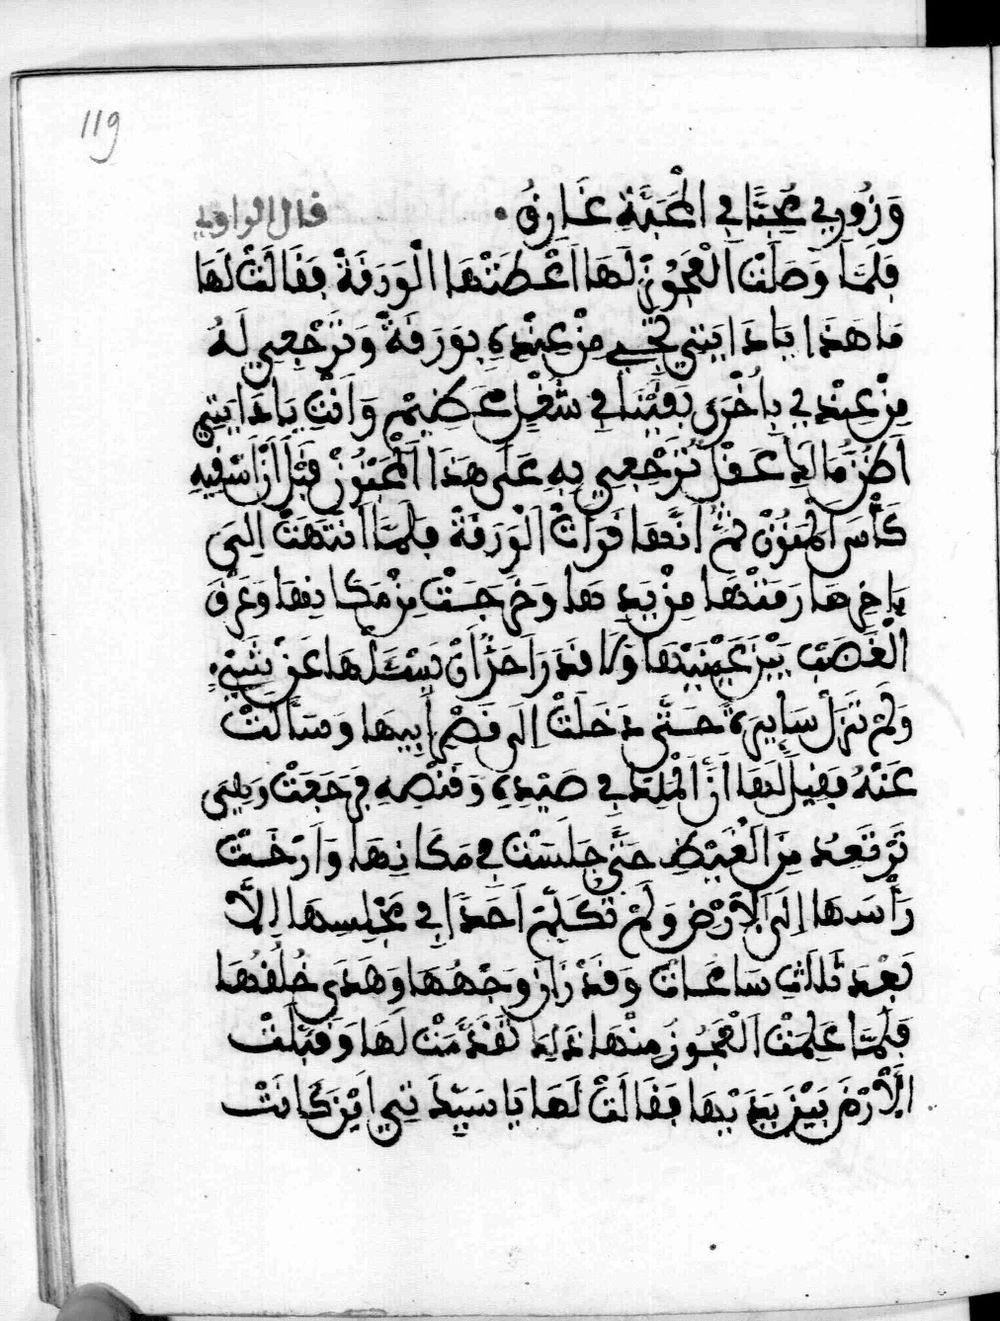 119
وَزُورِي مُحِبًّا فِي الْمَحَبَّةِ غَارِقُ . قال الراوي
فَلَمَّا وَصَلَتْ الْعَجُوزْ لَهَا اَعْطَتْهَا الْوَرَقَةْ فَقَالَتْ لَهَا
مَا هَذَا يَا دَايَتِي تَجِي مِنْ عِنْدِهِ بِوَرَقَةْ وَتَرْجَعِي لَهُ
مِنْ عِنْدِي بِاُخْرَى بَقَيْنَا فِي شُغْلٍ عَظِيمْ وَانْتِ يَا دَايَتِي
اَظُنُّ مَا لَكِ عَقْلْ تَرْجَعِي بِهِ عَلَى هَذَا الْمَجْنُونْ قَبْلَ اَنْ اَسْقِيهِ
كَأْسَ الْمَنُونْ ثُمَّ اَنَّهَا قَرَاتْ الْوَرَقَةْ فَلَمَّا انْتَهَتْ اِلَى
ءَاخِرِهَا رَمَتْهَا مِنْ يَدِهَا وَخَرَجَتْ مِنْ مَكَانِهَا وَعَرَقَ
الْغَضَبْ بَيْنَ عَيْنَيْهَا وَلَا قَدَرَ اَحَدٌ اَنْ يَسْئَلْهَا عَنْ شَيْءٍ
وَلَمْ تَزَلْ سَايِرَةْ حَتَّى دَخَلَتْ اِلَى قَصْرِ اَبِيهَا وَسَأَلَتْ
عَنْهُ فَقِيلَ لَهَا اَنَّ الْمَلِكَ فِي صَيْدِهِ وَقَنْصِهِ فَرَجَعَتْ وَهِيَ
تَرْتَعِدْ مِنَ الْغَيْظِ حَتَّى جَلَسَتْ فِي مَكَانِهَا وَاَرْخَتْ
رَأْسَهَا اِلَى الْاَرْضِ وَلَمْ تُكَلِّمْ اَحَدًا فِي مَجْلِسِهَا اِلَّا
بَعْدَ ثَلَاثِ سَاعَاتْ وَقَدْ زَانْ وَجْهُهَا وَهَدَى خُلُقُهَا
فَلَمَّا عَلِمَتْ الْعَجُوزُ مِنْهَا ذَلِكَ تَقَدَّمَتْ لَهَا وَقَبَّلَتْ
الْاَرْضَ بَيْنَ يَدَيْهَا فَقَالَتْ لَهَا يَا سَيِّدَتِي اَيْنَ كَانَتْ